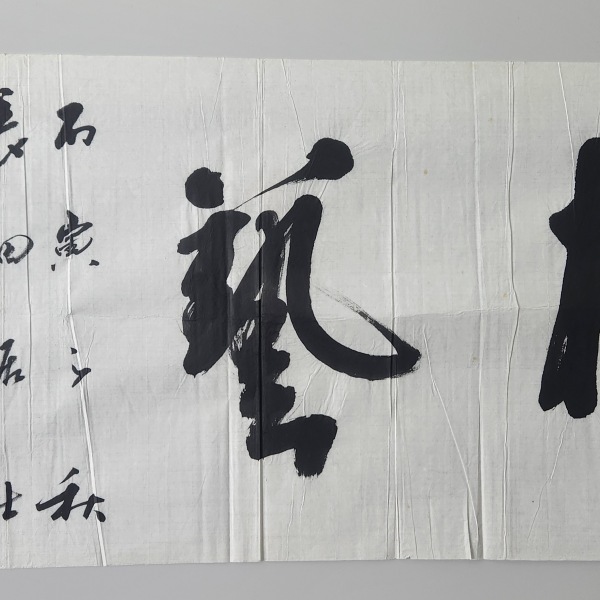 藝
丙寅之秋
田居士